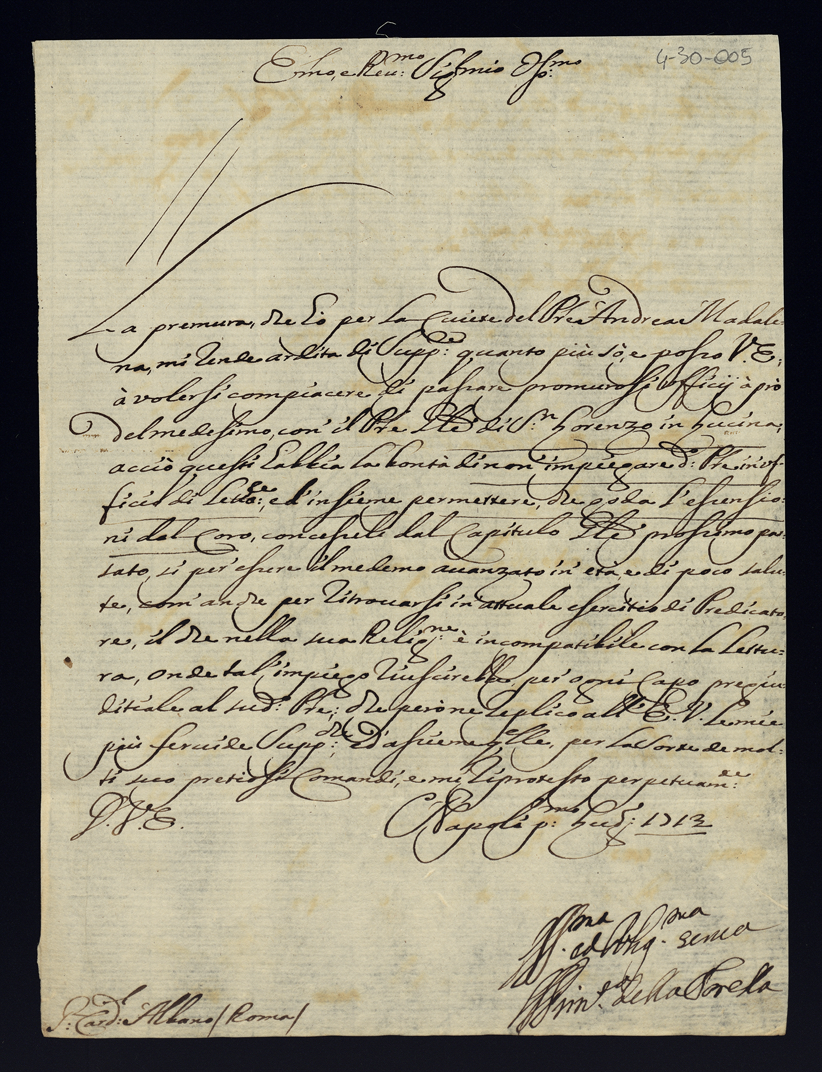 4-30-005
Em̃o, e Reu:mo Sig.r mio Oss:mo
La premura, che hò per la Quiete del Pr̃e Andrea Madale-
na, mi rende ardita di Supp:re quanto più sò, e posso V. E:
à volersi compiacere di passare promurosi officij à prò
del medesimo, con il Pr̃e di S.n Lorenzo in Lucina,
acciò questi habbia la bontà di non impiegare d:o Pr̃e in uf-
ficio di Lett:re, ed insieme permettere, che goda l'esenzio:
ni dal Coro, concesseli dal Capitulo prossimo pas-
sato, sì per essere il medemo auanzato in età, e di poco salu-
te, com'anche per ritrouarsi in attuale esercitio di Predicato
re, il che nella sua Relig:ne è incompatibile con la Lettu-
ra, onde tal'impiego riuscirebbe per ogni Capo pregiu-
ditiale al sud:o Pr̃e; che però ne replico all' E. V. le mie
più feruide Supp:che, ed à suene q.lle, per la sorte de mol-
ti suo pretiosi Comandi, e mi riprotesto perpetuam:te
D. V. E.
Napoli p:mo 1713
ma ed Obłig.ma serua
della Torella
S: Card:l Albano / Roma /